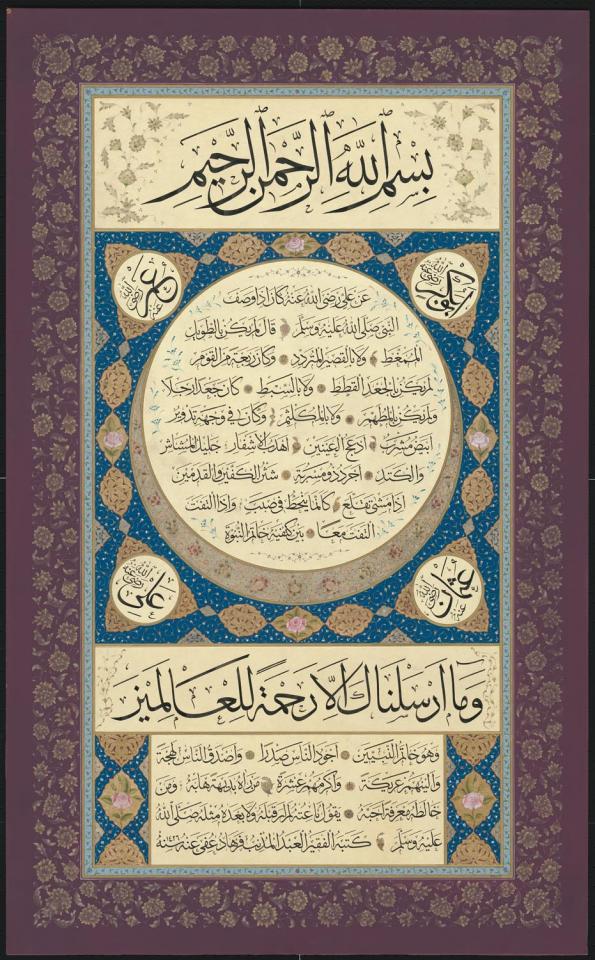 بِسْمِ اللهِ الرَّحْمٰنِ الرَّحِيمِ
ابو بكر رضى الله عنه
عمر رضى الله عنه
عن على رضى الله عنه كان اذا وصف
النبى صلى الله عليه وسلم قال لم يكن بالطويل
الممغط ولا بالقصير المتردد وكان ربعة من القوم
لم يكن بالجعد القطط ولا بالسبط كان جعدا رجلا
ولم يكن بالمطهم ولا بالمكلثم وكان فى وجهه تدوير
ابيض مشرب ادعج العينين اهدب الاشفار جليل المشاش
والكتد اجرد ذو مسربة شثن الكفين والقدمين
اذا مشى تقلع كانما ينحط فى صبب واذا التفت
التفت معا بين كتفيه خاتم النبوة
عثمان رضى الله عنه
على رضى الله عنه
وما ارسلناك الا رحمة للعالمين
وهو خاتم النبيين اجود الناس صدرا واصدق الناس لهجة
والينهم عريكة واكرمهم عشرة من رآه بديهة هابه ومن
خالطه معرفة احبه يقول ناعته لم ار قبله ولا بعده مثله صلى الله
عليه وسلم كتبه الفقير العبد المذنب فرهاد عفى عنه سنة